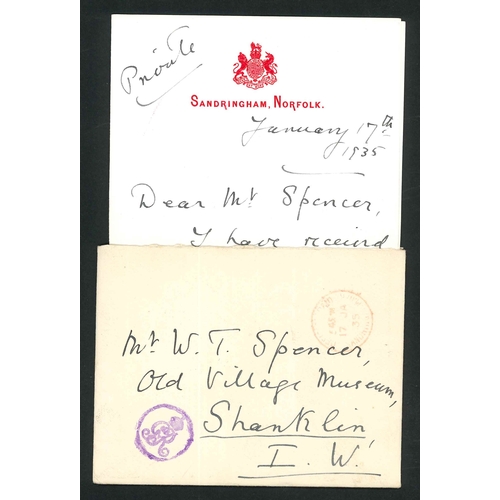 Private
SANDRINGHAM, NORFOLK.
January 17th
1935
Dear Mr Spencer,
I have received
Mr W. T. Spencer,
Old Village Museum,
Shanklin,
I. W.